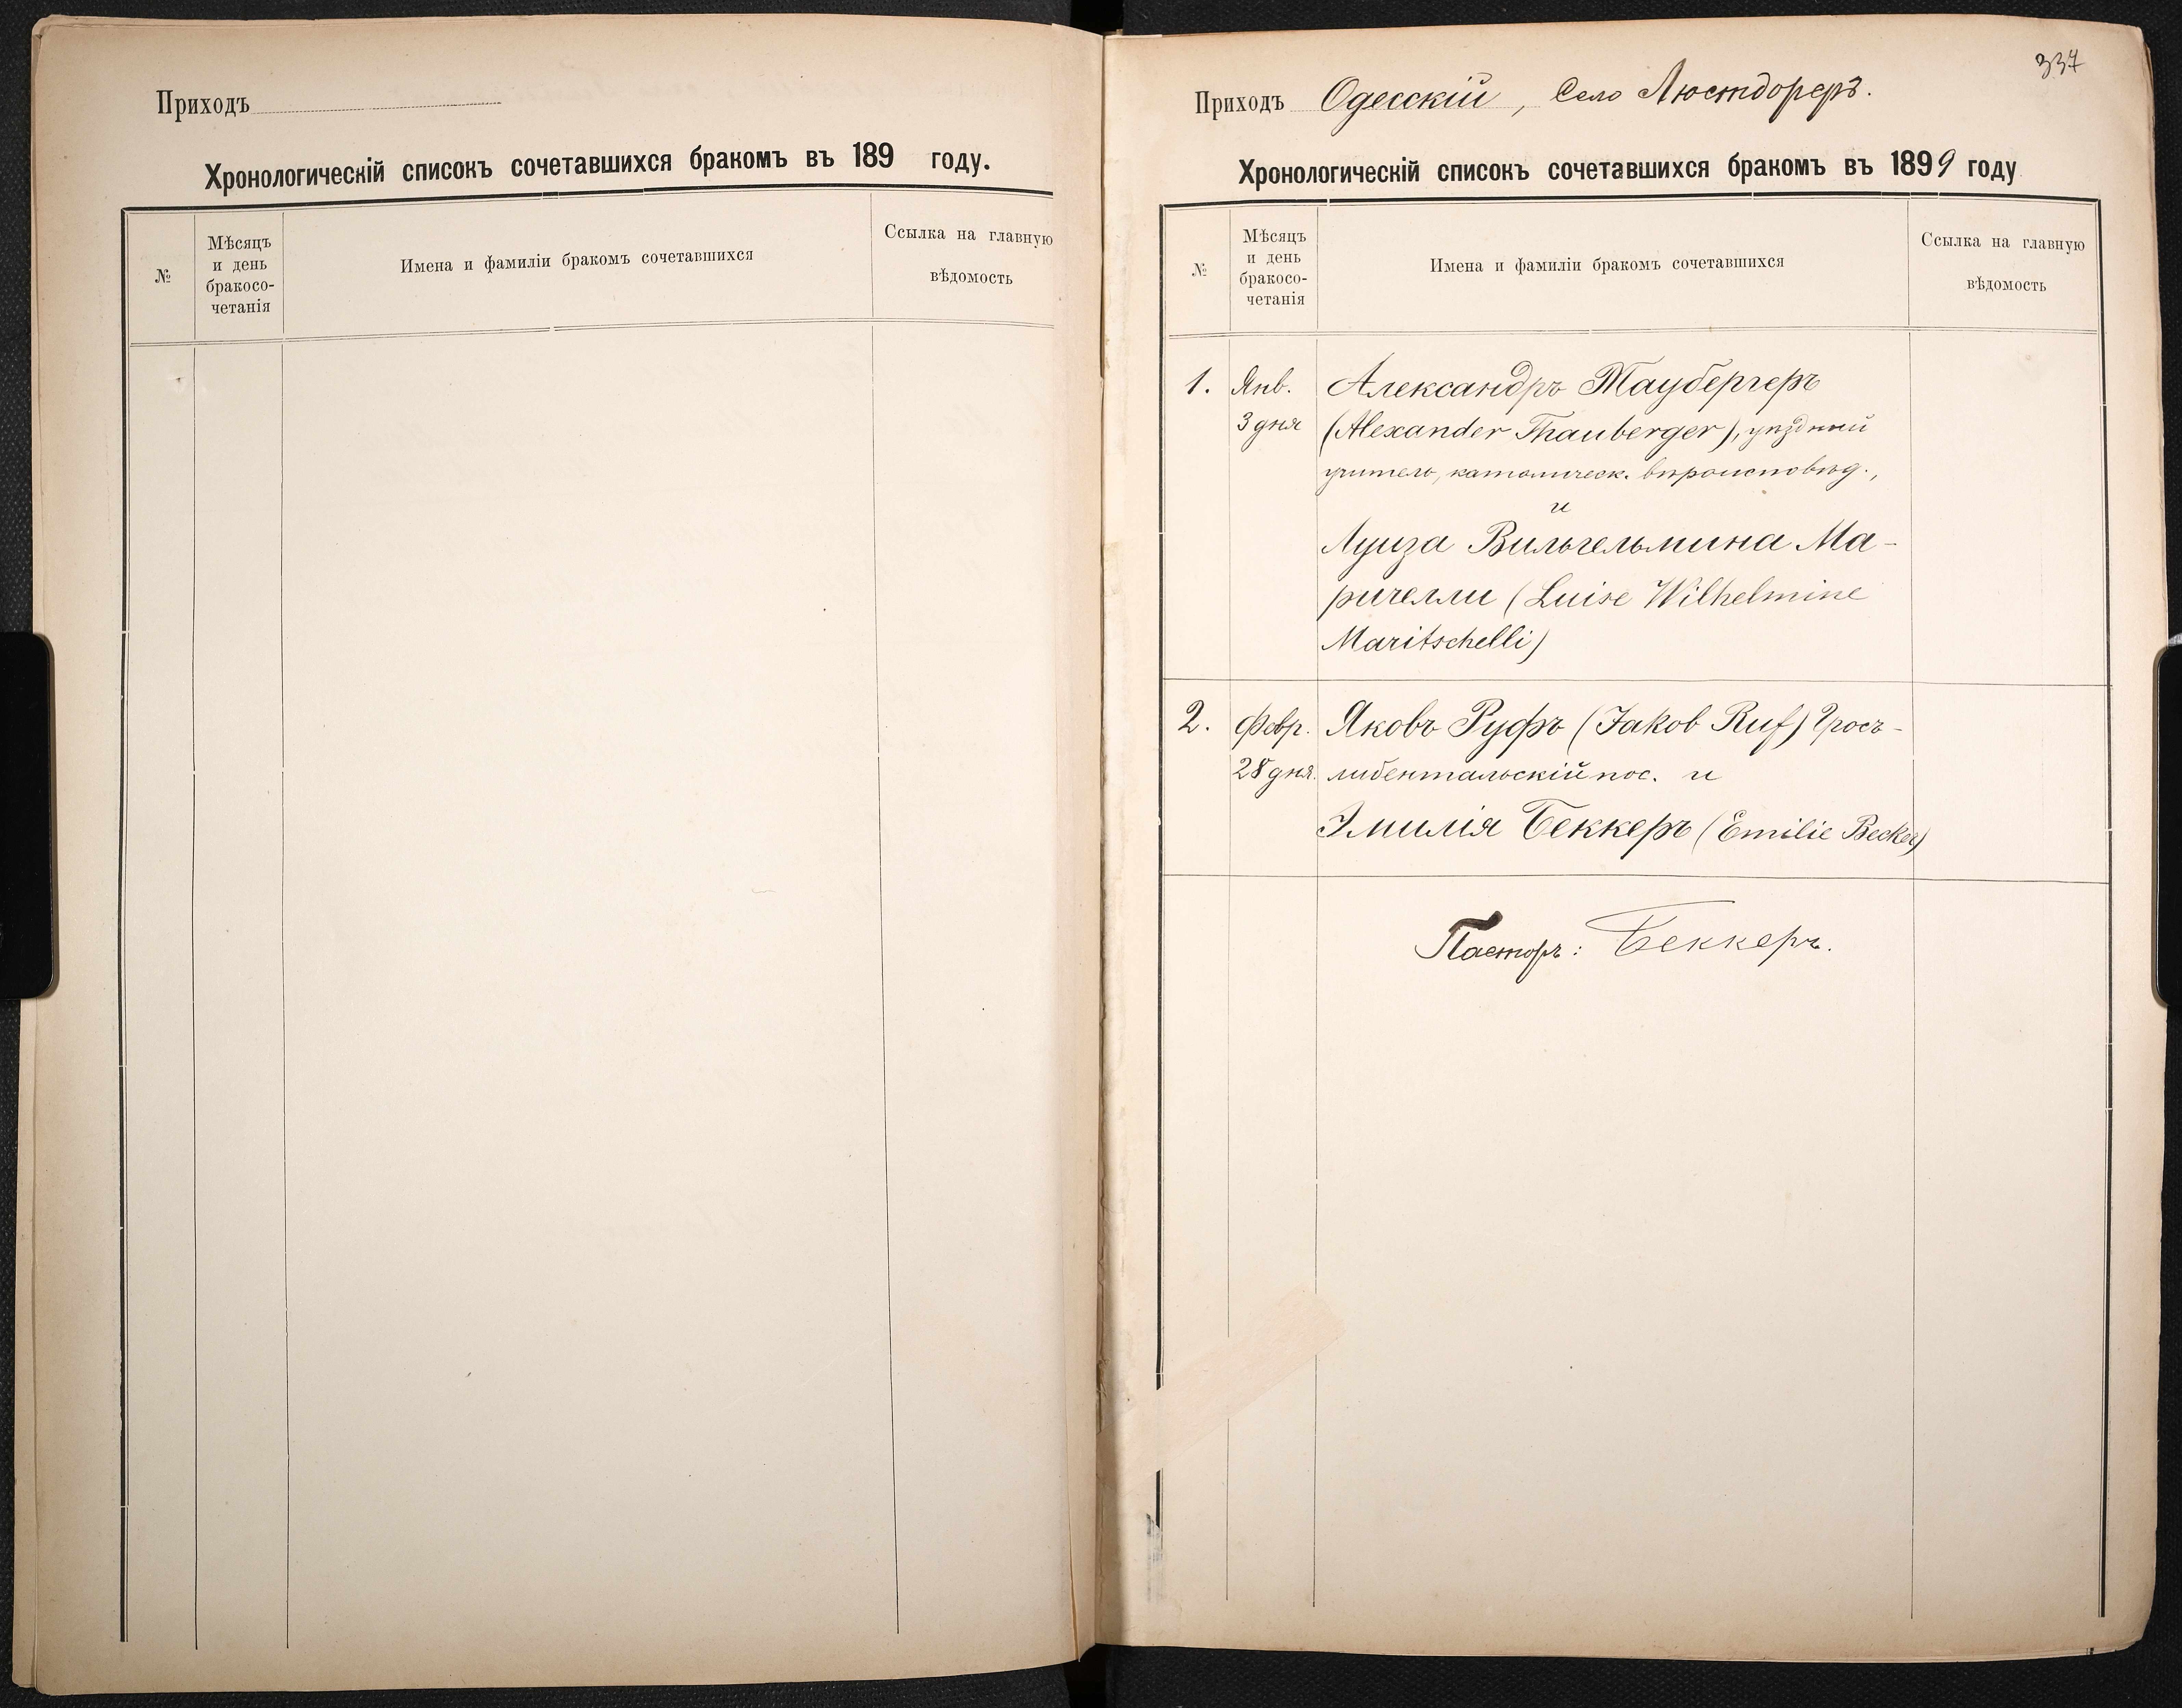 Приходъ
Хронологическій списокъ сочетавшихся бракомъ въ 189 году.
№
Мѣсяцъ
и день
бракосо-
четанія
Имена и фамиліи бракомъ сочетавшихся
Ссылка на главную
вѣдомость
337
Приходъ Одесскій, Село Люстдорфъ.
Хронологическій списокъ сочетавшихся бракомъ въ 1899 году
№
Мѣсяцъ
и день
бракосо-
четанія
Имена и фамиліи бракомъ сочетавшихся
Ссылка на главную
вѣдомость
1. Янв. Александръ Таубергеръ
3 дня (Alexander Thauberger), уѣздный
учитель, католическ. вѣроисповѣд.,
и
Луиза Вильгельмина Ма-
ричелли (Luise Wilhelmine
Maritschelli)
2. Февр. Яковъ Руфъ (Jakob Ruf) Грос-
28 дня. либентальскій пос. и
Эмилія Беккеръ (Emilie Becker)
Пасторъ: Беккеръ.